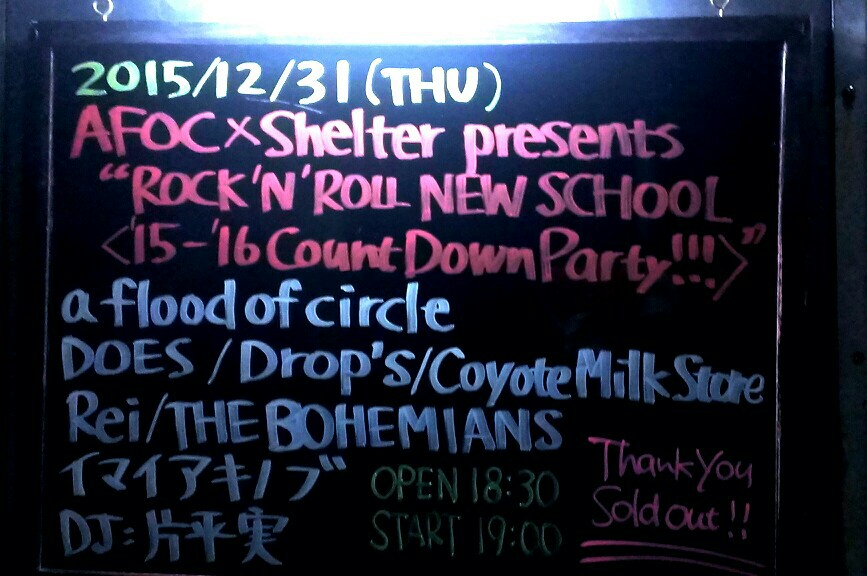 2015/12/31(THU)
AFOC×Shelter presents
"ROCK'N'ROLL NEW SCHOOL
<'15-'16 Count Down Party!!!>"
a flood of circle
DOES / Drop's / Coyote Milk Store
Rei / THE BOHEMIANS
イマイアキノブ
DJ:片平実
OPEN 18:30
START 19:00
Thank You
Sold out!!